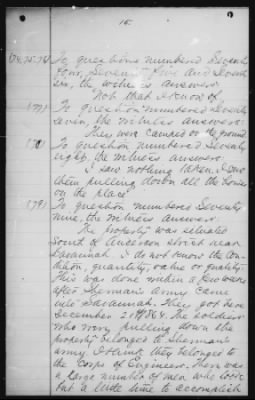 15.
(74.75.76) To questions numbered Seventy
four, Seventy five and Seventy
six, the witness answers:
Not that I know of.
(77) To question numbered Seventy
seven, the witness answers:
They were camped on the ground
(78) To question numbered Seventy
eight, the witness answers:
I saw nothing taken. I saw
them pulling down all the houses
on the place.
(79) To question numbered Seventy
nine, the witness answers:
The property was situated
South of Anderson street near
Savannah. I do not know the con-
dition, quantity, value or quality.
This was done within a few days
after Sherman's army came
into Savannah. They got here
December 21st 1864. The soldiers
who were pulling down the
property belonged to Sherman's
army. I think they belonged to
the Corps of Engineers. There was
a large number of men who took
but a little time to accomplish